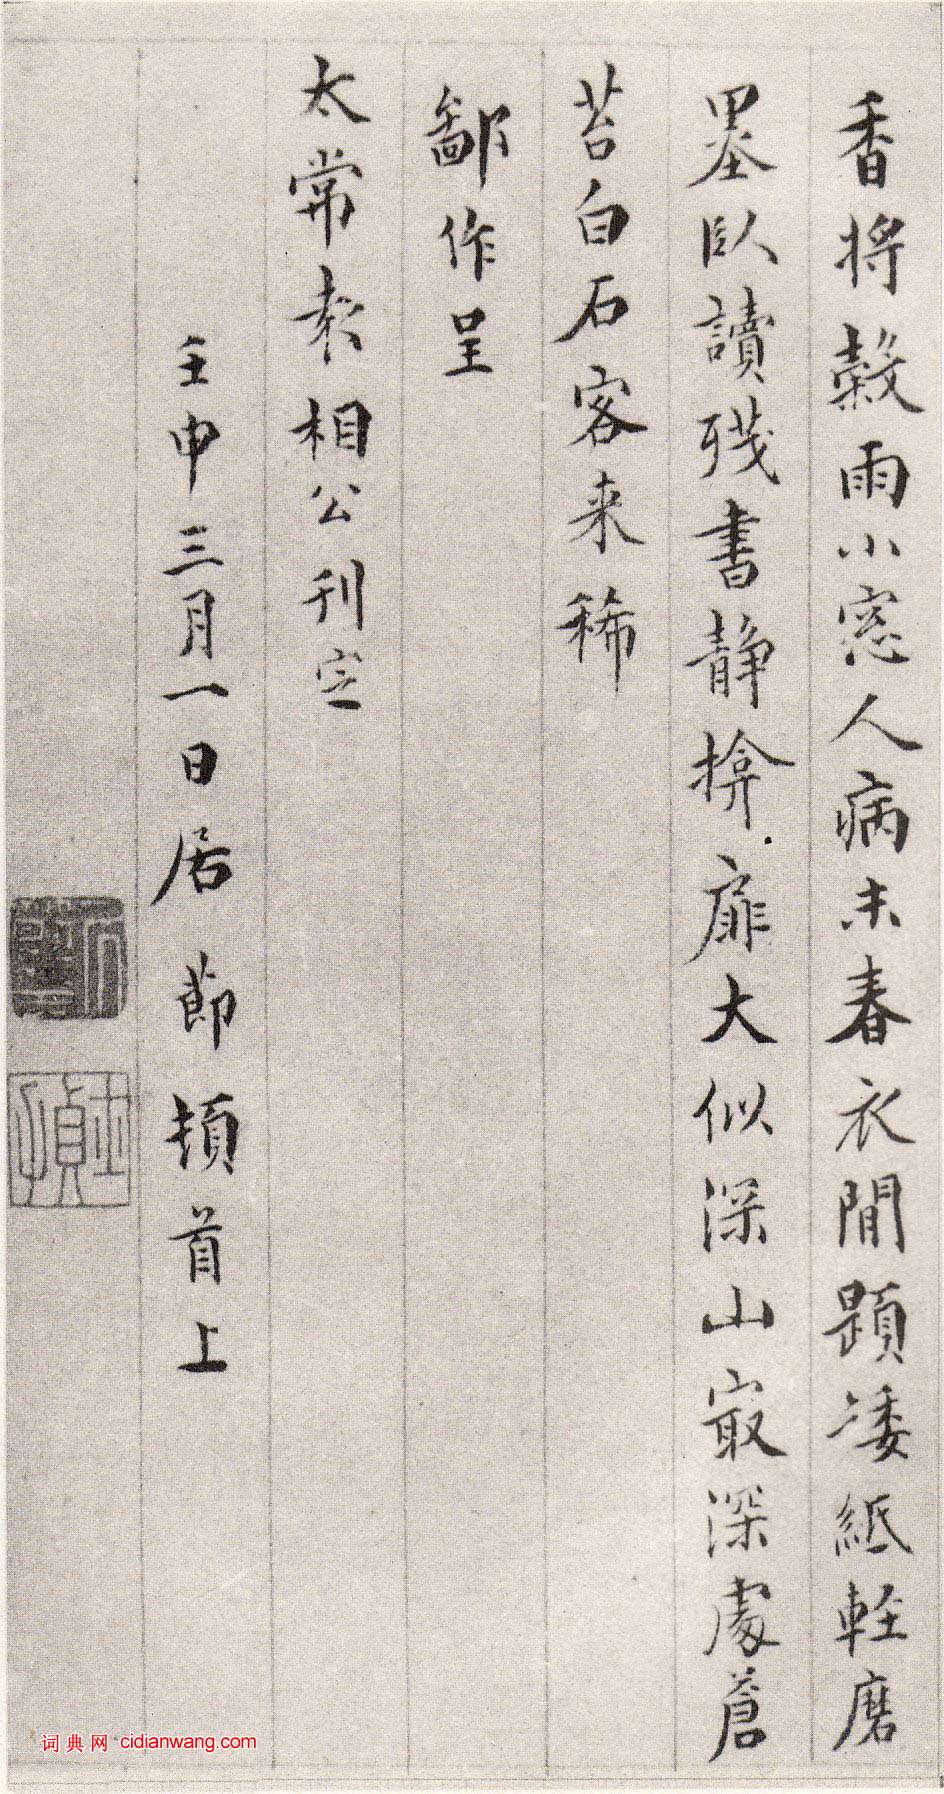 香将穀雨小窓人病未春衣閒題矮紙輕磨
墨臥讀殘書静揜扉大似深山㝡深處蒼
苔白石客来稀
鄙作呈
太常袁相公刊定
壬申三月一日居節頓首上
词典网 cidianwang.com